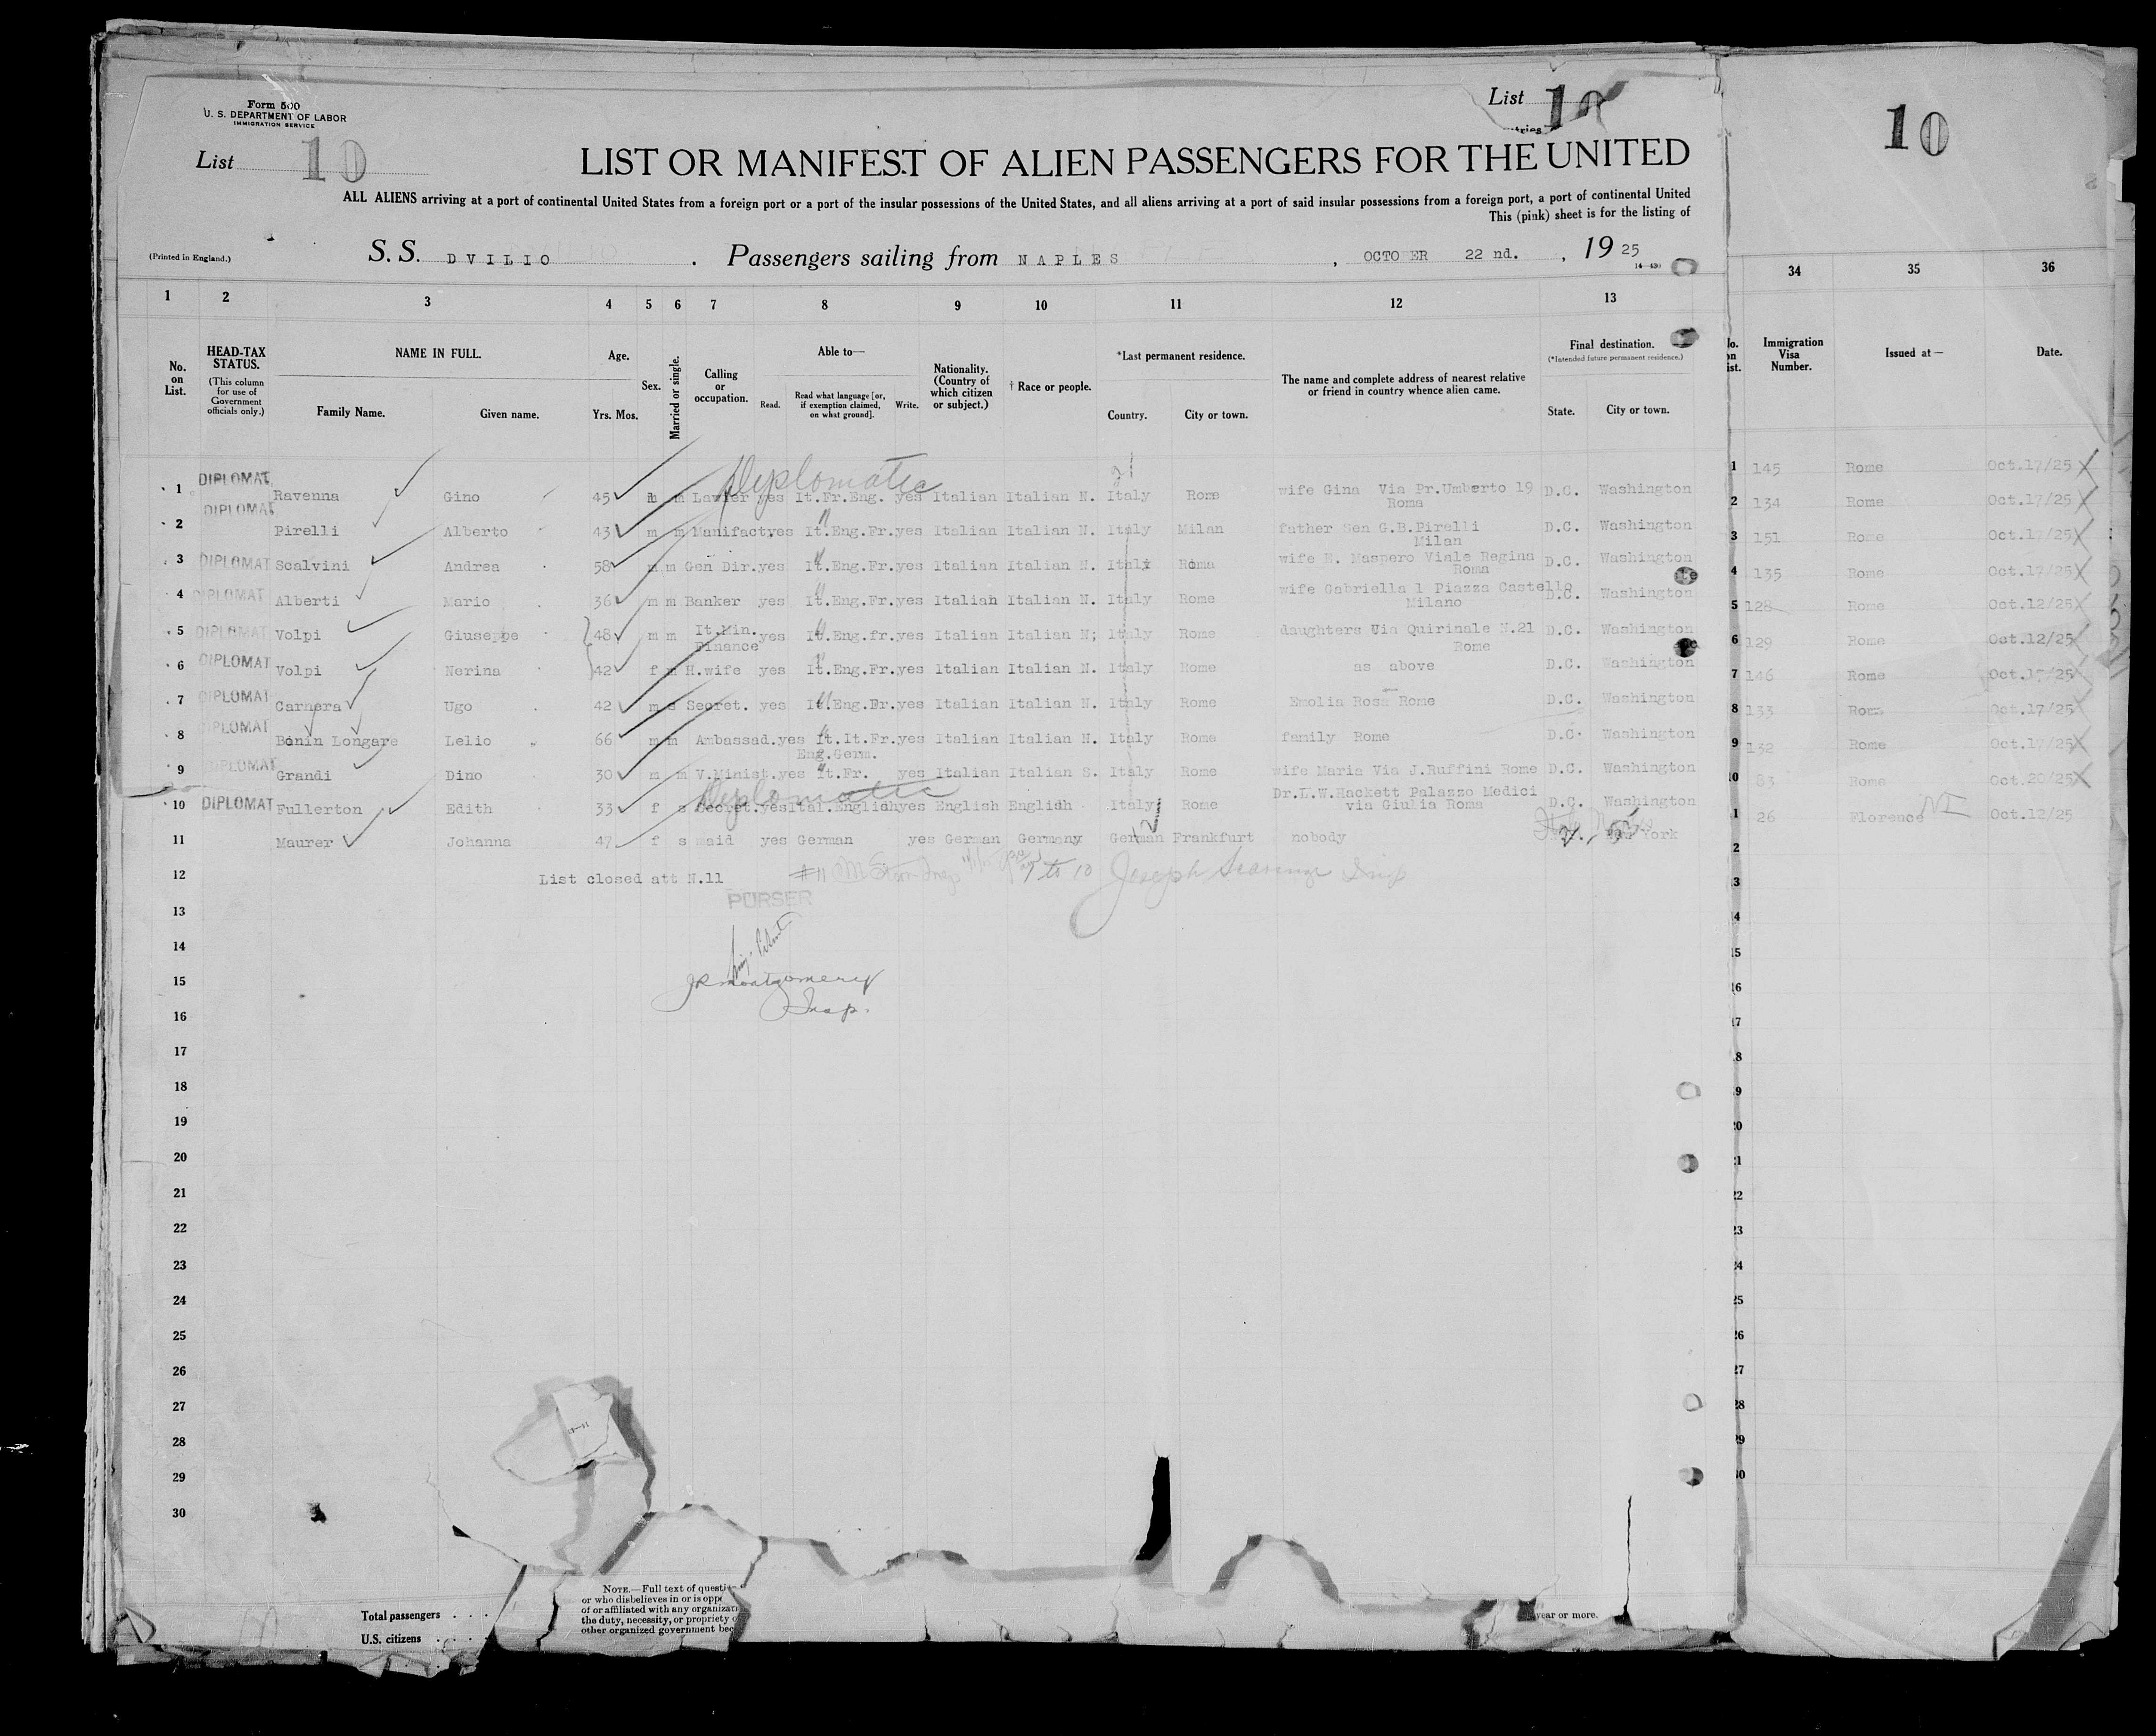 Form 500
U. S. DEPARTMENT OF LABOR
IMMIGRATION SERVICE
List 10
List 10
10
LIST OR MANIFEST OF ALIEN PASSENGERS FOR THE UNITED
ALL ALIENS arriving at a port of continental United States from a foreign port or a port of the insular possessions of the United States, and all aliens arriving at a port of said insular possessions from a foreign port, a port of continental United
This (pink) sheet is for the listing of
(Printed in England.)
S. S. DVILIO . Passengers sailing from NAPLES , OCTO ER 22 nd. , 19 25
1 2 3 4 5 6 7 8 9 10 11 12 13 34 35 36
No. on List.
HEAD-TAX STATUS.
(This column for use of Government officials only.)
NAME IN FULL.
Family Name. Given name.
Age.
Yrs. Mos.
Sex.
Married or single.
Calling or occupation.
Able to—
Read. Read what language [or, if exemption claimed, on what ground]. Write.
Nationality. (Country of which citizen or subject.)
† Race or people.
*Last permanent residence.
Country. City or town.
The name and complete address of nearest relative or friend in country whence alien came.
Final destination.
(*Intended future permanent residence.)
State. City or town.
Immigration Visa Number.
Issued at—
Date.
Diplomatic
1 DIPLOMAT Ravenna Gino 45 m m Lawier yes It.Fr.Eng. yes Italian Italian N. Italy Rome wife Gina Via Pr.Umberto 19 Roma D.C. Washington 145 Rome Oct.17/25
2 DIPLOMAT Pirelli Alberto 43 m m Manifact yes It.Eng.Fr. yes Italian Italian N. Italy Milan father Sen G.B.Pirelli Milan D.C. Washington 134 Rome Oct.17/25
3 DIPLOMAT Scalvini Andrea 58 m m Gen Dir. yes It.Eng.Fr. yes Italian Italian N. Italy Roma wife M. Maspero Viale Regina Roma D.C. Washington 151 Rome Oct.17/25
4 DIPLOMAT Alberti Mario 36 m m Banker yes It.Eng.Fr. yes Italian Italian N. Italy Rome wife Gabriella 1 Piazza Castello Milano D.C. Washington 135 Rome Oct.17/25
5 DIPLOMAT Volpi Giuseppe 48 m m It.Min. Finance yes It.Eng.fr. yes Italian Italian N; Italy Rome daughters Via Quirinale N.21 Rome D.C. Washington 128 Rome Oct.12/25
6 DIPLOMAT Volpi Nerina 42 f m H.wife yes It.Eng.Fr. yes Italian Italian N. Italy Rome as above D.C. Washington 129 Rome Oct.12/25
7 DIPLOMAT Carnera Ugo 42 m s Secret. yes It.Eng.Fr. yes Italian Italian N. Italy Rome Emolia Rosa Rome D.C. Washington 146 Rome Oct.17/25
8 DIPLOMAT Bonin Longare Lelio 66 m m Ambassad. yes It.It.Fr. Eng.Germ. yes Italian Italian N. Italy Rome family Rome D.C. Washington 133 Rome Oct.17/25
9 DIPLOMAT Grandi Dino 30 m m V.Minist. yes It.Fr. yes Italian Italian S. Italy Rome wife Maria Via J.Ruffini Rome D.C. Washington 132 Rome Oct.17/25
Diplomatic
10 DIPLOMAT Fullerton Edith 33 f s Secret. yes Ital.English yes English Englidh Italy Rome Dr.L.W.Hackett Palazzo Medici via Giulia Roma D.C. Washington 83 Rome Oct.20/25
11 Maurer Johanna 47 f s maid yes German yes German Germany German Frankfurt nobody New York 26 Florence Oct.12/25
12 List closed att N.11 #11 1 to 10 Joseph Insp
13 PURSER
14
15 JR Montgomery
16 Insp.
17
18
19
20
21
22
23
24
25
26
27
28
29
30
Total passengers . . .
U.S. citizens . . .
NOTE.—Full text of questi
or who disbelieves in or is opp
of or affiliated with any organizati
the duty, necessity, or propriety o
other organized government bec
year or more.